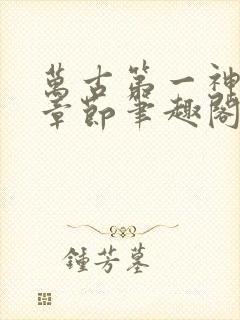 萬古第一神
章節筆趣閣
鍾芳墓